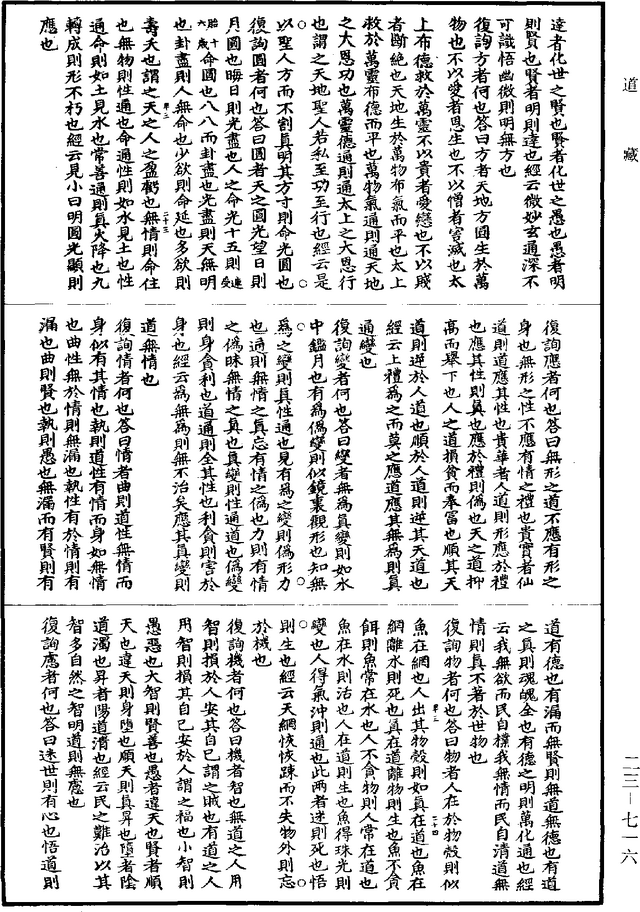 道藏
達者化世之賢也賢者化世之愚也愚者明
則賢也賢者明則達也經云微妙玄通深不
可識悟幽微則明無方也
復詢方者何也答曰方者天地方圓生於萬
物也不以愛者恩生也不以憎者害滅也太
上布德救於萬靈不以貴者愛戀也不以賤
者斷絕也天地生於萬物布氣而平也太上
救於萬靈布德而平也萬物氣通則通天地
之大恩功也萬靈德通則通太上之大恩行
也謂之天地聖人若私至功至行也經云是
以聖人方而不割真明其方寸則命光圓也
復詢圓者何也答曰圓者天之圓光望日則
月圓也晦日則光盡也人之命光十五則
命圓也八八而卦盡也光盡則天無明
也卦盡則人無命也少欲則命延也多欲則
壽夭也謂之天之人之盈虧也無情則命住
也無物則性通也命通性則如水見土也性
通命則如土見水也常善通則真火降也九
轉成則形不朽也經云見小曰明圓光顯則
應也
復詢應者何也答曰無形之道不應有形之
身也無形之性不應有情之禮也貴實者仙
道則道應其性也貴華者人道則形應於禮
也應其性則真也應於禮則偽也天之道抑
高而舉下也人之道損貧而奉富也順其天
道則逆於人道也順於人道則逆其天道也
經云上禮為之而莫之應道應其無為則真
通變也
復詢變者何也答曰變者無為真變則如水
中鑑月也有為偽變則似鏡裏觀形也知無
為之變則真性通也見有為之變則偽形力
也通則無情之真忘有情之偽也力則有情
之偽昧無情之真也真變則性通道也偽變
則身貪利也道通則全其性也利貪則害於
身也經云為無為則無不治矣應其真變則
道無情也
復詢情者何也答曰情者曲則道性無情而
身似有其情也執則道性有情而身如無情
也曲性無於情則無漏也執性有於情則有
漏也曲則賢也執則愚也無漏而有賢則有
道有德也有漏而無賢則無道無德也有道
之真則魂魄全也有德之明則萬化通也經
云我無欲而民自樸我無情而民自清道無
情則真不著於世物也
復詢物者何也答曰物者人在於物殼則似
魚在網也人出其物殼則如真在道也魚在
網離水則死也真在道離物則生也魚不貪
餌則魚常在水也人不貪物則人常在道也
魚在水則活也人在道則生也魚得珠光則
變也人得氣沖則通也此兩者迷則死也悟
則生也經云天網恢恢踈而不失物外則忘
於機也
復詢機者何也答曰機者智也無道之人用
智則損於人安其自己謂之賊也有道之人
用智則損其自己安於人謂之福也小智則
愚惡也大智則賢善也愚者違天也賢者順
天也違天則身墮也順天則真昇也墮者陰
道濁也昇者陽道清也經云民之難治以其
智多自然之智明道則無慮也
復詢慮者何也答曰迷世則有心也悟道則
二三—七一六